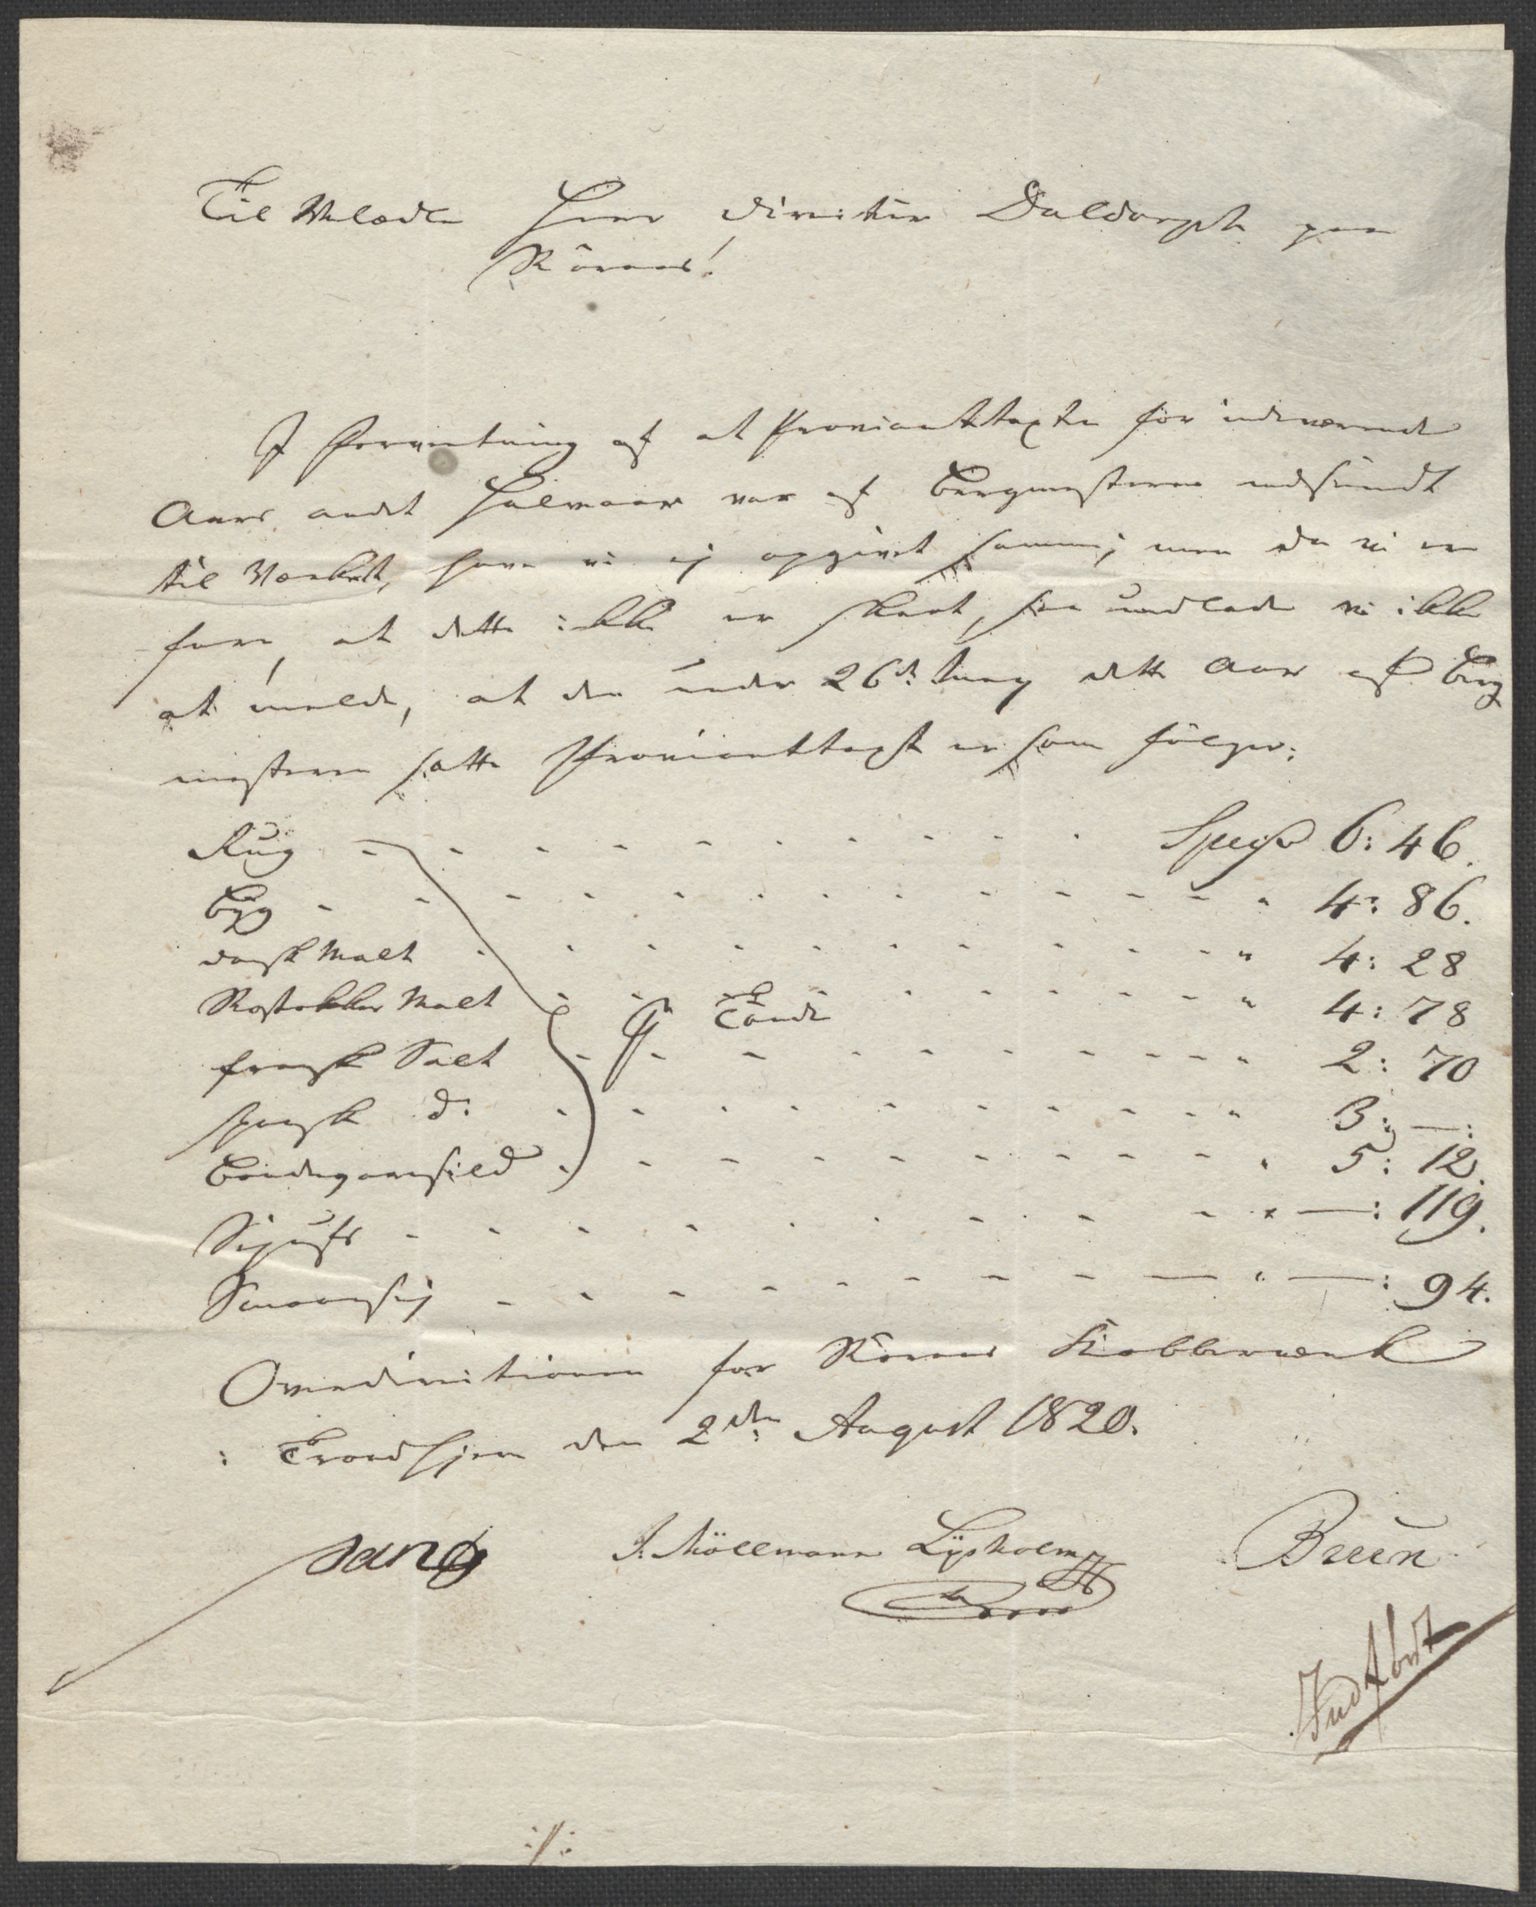 Til Velædle Herr Directeur Daldorph paa
Röraas!
I Forventning af at Provianttaxten for indeværende
Aars andet Halvaar var af Bergmesteren udsendt
til Værket, have vi ej opgivet samme; men da vi er
fare, at dette ikke er skeet, saa undlade vi ikke
at melde, at den under 26d. Juny dette Aar af Berg
mesteren satte Provianttaxt er som følger:
Rug - - - - - - - - Specs 6: 46.
Byg - - - - - - - - " 4: 86.
dansk Malt - - - - - - - - " 4: 28
Rostokker Malt - - - - - - - - " 4: 78
pr Tönde
fransk Salt - - - - - - - - " 2: 70
spansk do - - - - - - - - " 3: —:
Bondegarnsild - - - - - - - - " 5: 12.
- - - - - - - - " —: 119.
Smaaesej - - - - - - - - " —: 94.
Overdirectionen for Röraas Kobberværk
i Trondhjem den 2den August 1820.
Lang J. Möllmann Lysholm Bruun
Indført
:/: